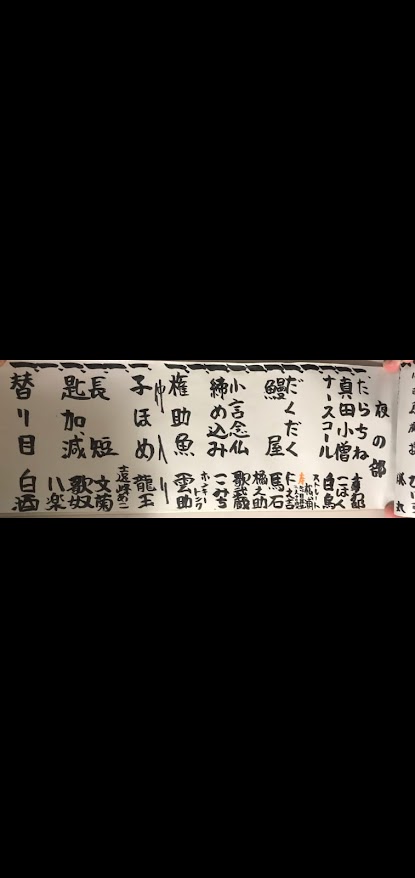 夜の部
たらちね
真田小僧 一猿
ナースコール 白鳥
ストレート
だくだく
鰻屋 馬石
橘之助
小言念仏 歌武蔵
締め込み こみち
ホンキートンク
権助魚 雲助
仲入り
子ほめ 龍玉
長短 文菊
匙加減 歌奴
八楽
替り目 白酒